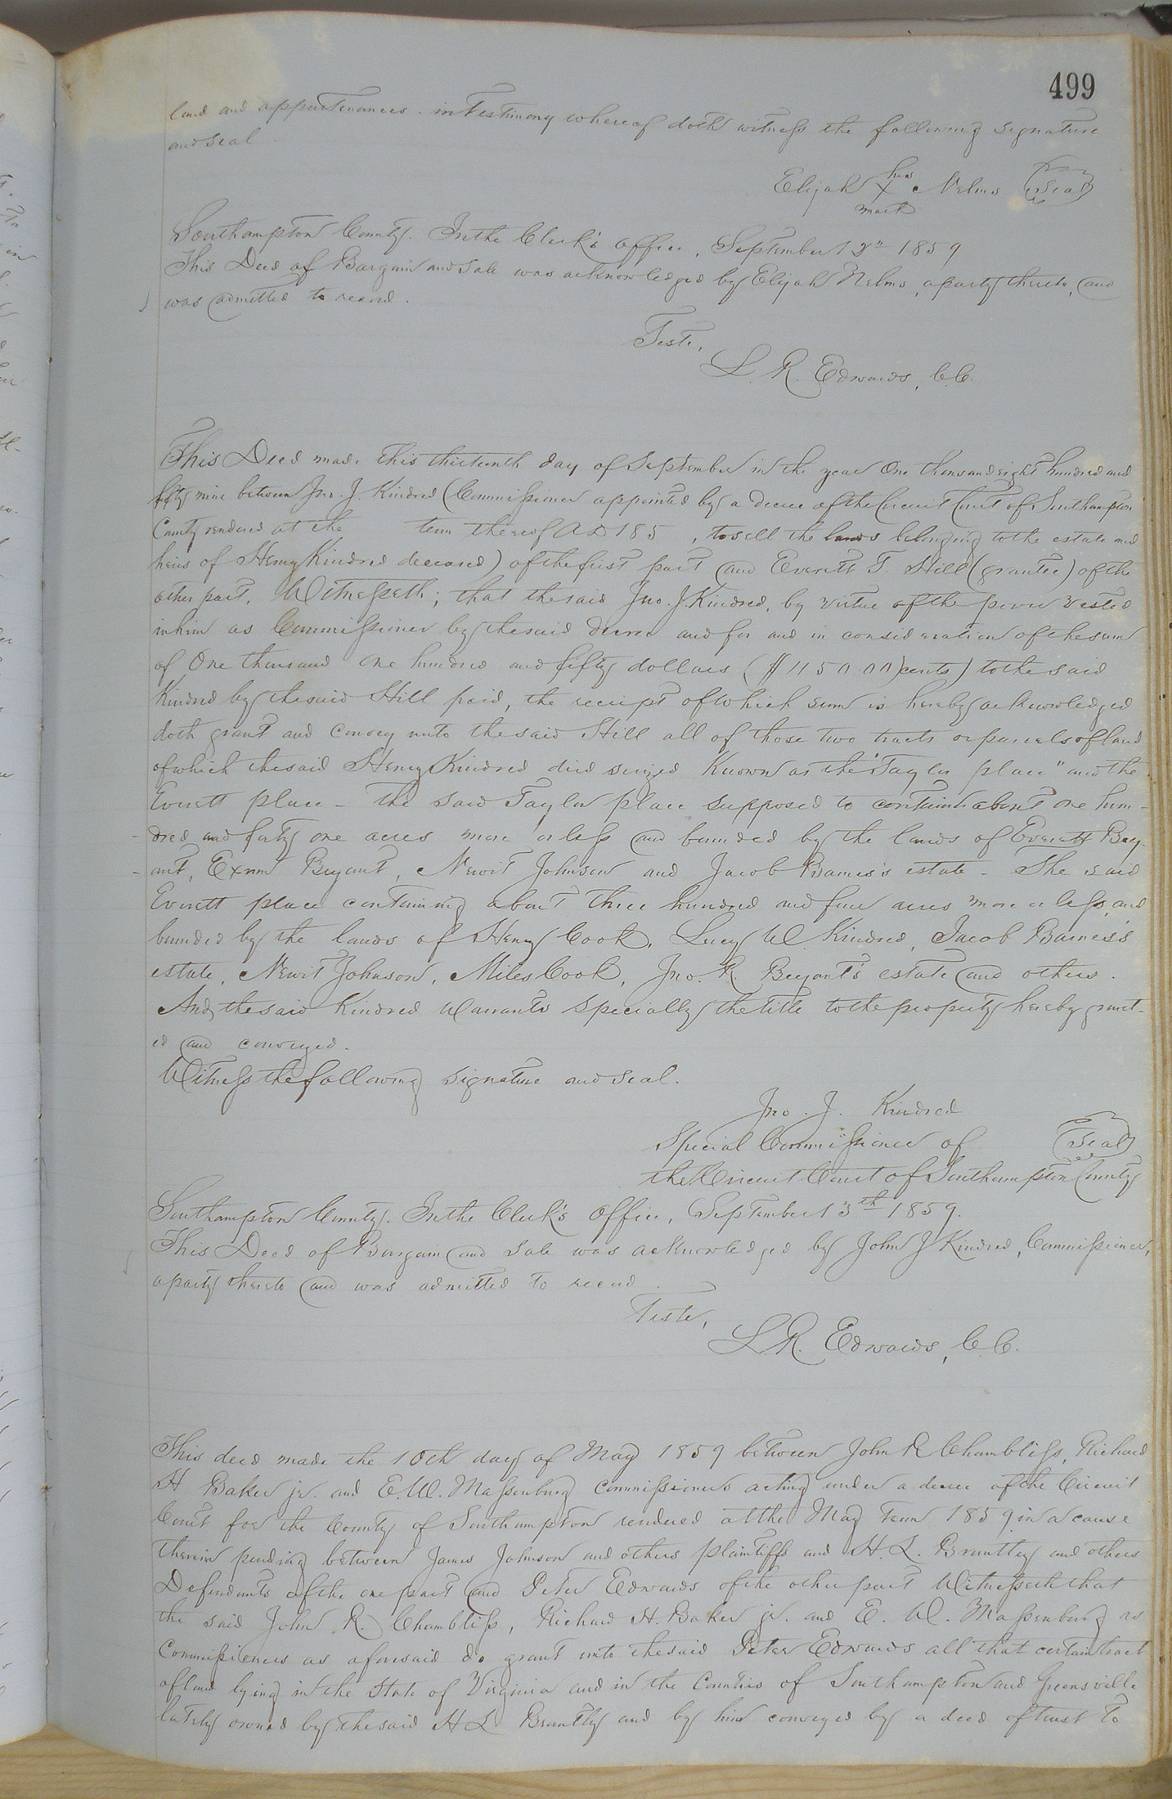 499
land and appurtenances. in Testimony whereof doth witness the following signature
and seal
his
Elijah X Nelms (Seal)
mark
Southampton County. In the Clerk's office, September 12th 1859
This Deed of Bargain and sale was acknowledged by Elijah Nelms, a party thereto, and
was admitted to record.
Teste,
L. R. Edwards, C.C.
This Deed made this thirteenth day of September in the year One thousand eight hundred and
fifty nine between Jno. J. Kindred (Commissioner appointed by a decree of the Circuit Court of Southampton
County rendered at the term thereof A D 185 , to sell the lands belonging to the estate and
heirs of Henry Kindred deceased) of the first part and Everett T. Hill (grantee) of the
other part, Witnesseth; that the said Jno. J. Kindred, by virtue of the power vested
in him as Commissioner by the said decree and for and in consideration of the sum
of One thousand one hundred and fifty dollars ($1150.00 cents) to the said
Kindred by the said Hill paid, the receipt of which sum is hereby acknowledged
doth grant and convey unto the said Hill all of those two tracts or parcels of land
of which the said Henry Kindred died seized known as the "Taylor place" and the
Everett place - The said Taylor place supposed to contain about one hun-
dred and forty one acres more or less and bounded by the lands of Everett Bry-
ant, Exum Bryant, Newit Johnson and Jacob Barnes's estate - The said
Everett place containing about three hundred and four acres more or less, and
bounded by the lands of Henry Cook, Lucy W Kindred, Jacob Barnes's
estate, Newit Johnson, Miles Cook, Jno. R Bryant's estate and others.
And the said Kindred warrants specially the title to the property hereby grant-
ed and conveyed.
Witness the following signature and seal.
Jno. J. Kindred
Special Commissioner of (Seal)
the Circuit Court of Southampton County
Southampton County. In the Clerk's Office, September 13th 1859.
This Deed of Bargain and Sale was acknowledged by John J Kindred, Commissioner,
a party thereto and was admitted to record.
Teste,
L. R. Edwards, C.C.
This deed made the 10th day of May 1859 between John R Chambliss, Richard
H Baker jr. and E. W. Massenburg commissioners acting under a decree of the Circuit
Court for the County of Southampton rendered at the May term 1859 in a cause
therein pending between James Johnson and others plaintiffs and H. L. Brantley and others
Defendants of the one part and Peter Edwards of the other part Witnesseth that
the said John R. Chambliss, Richard H. Baker jr. and E. W. Massenburg as
Commissioners as aforesaid do grant unto the said Peter Edwards all that certain tract
of land lying in the State of Virginia and in the Counties of Southampton and Greensville
lately owned by the said H L Brantly and by him conveyed by a deed of trust to